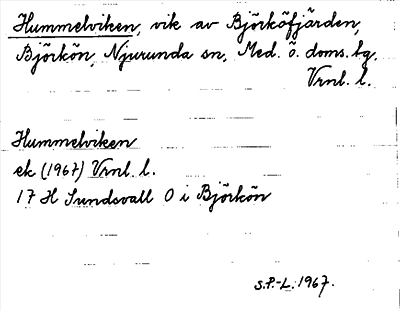 Hummelviken, vik av Björköfjärden,
Björkön, Njurunda sn, Med. ö. doms. bg.
Vrnl. l.
Hummelviken
ek (1967) Vrnl. l.
17 H Sundsvall O i Björkön
S.P.-L. 1967.